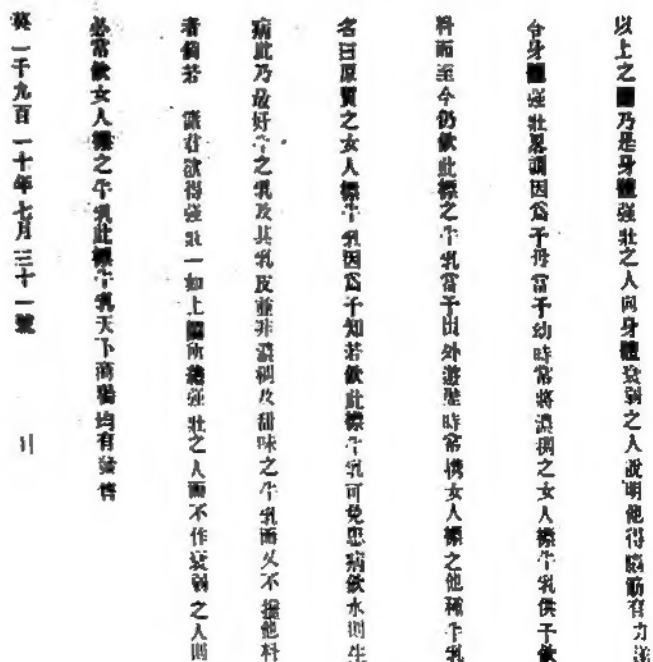 以上之圖乃是身體強壯之人向身體衰弱之人說明他得腦筋有力
合身體強壯畧謂因爲予母當予幼時常將濃稠之女人標牛乳供予飲
料而至今仍飲此標之牛乳當予出外遊歷時常携女人標之他種牛乳
名曰原質之女人標牛乳因爲予知若飲此標牛乳可免患病飲水則生
病此乃最好牛之乳及其乳反並非濃稠及甜味之牛乳而又不攙他料
者倘若 諸君欲得強壯一如上圖所繪強壯之人而不作衰弱之人則
必常飲女人標之牛乳此標牛乳天下商場均有發售
英一千九百一十年七月三十一號